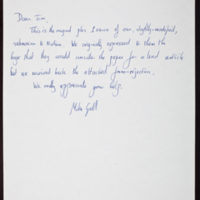 Dear Tim
This is the original plus 1 xerox of our, slightly-modified,
submission to Nature. We originally expressed to them the
hope that they would consider the paper for a lead article
but we received back the attached                .
We really appreciate your help.
Mike